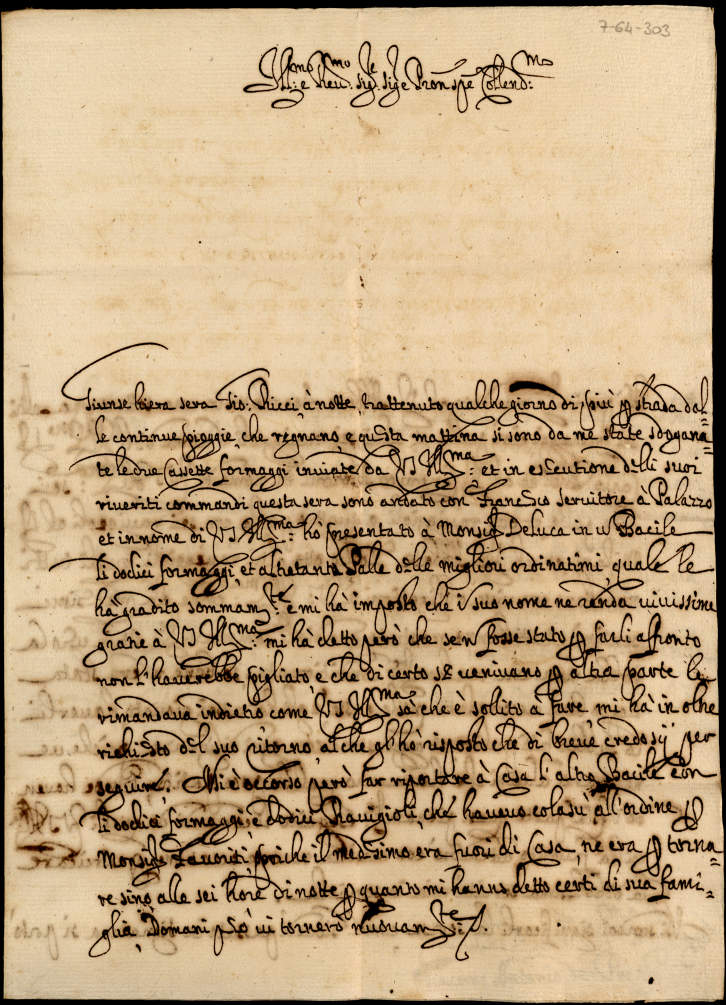 7-64-303
Ill:mo e Reu:mo Sig:re Sig:re e Pron spē Collend:mo
Giunse hiersera Gio: Ricci à notte, trattenuto qualche giorno di più p strada dal=
le continue pioggie, che regnano, e questa mattina si sono da me state sdogana=
te le due Cassette formaggi inuiate da VS Ill:ma et in esecutione delli suoi
riueriti commandi questa sera sono andato con Franc.sco seruitore à Palazzo
et in nome di VS Ill:ma hò presentato à Monsig Deluca in u Bacile
li dodici formaggi, et altretante Palle delle migliori ordinatimi, quale le
hà gradito sommam:te e mi hà imposto che i suo nome ne renda uiuissime
gratie à VS Ill:ma mi hà detto però che se n fosse stato p farli affronto
non l'hauerebbe pigliato e che di certo se ueniuano p altra parte le
rimandaua indietro come VS Ill:ma sà che è sollito à fare mi hà in oltre
richiesto del suo ritorno, al che gl'hò risposto che di breue credo sij per
seguire. Mi è occorso però far riportare à Casa l'altro Bacile con
li dodici formaggi, e dodici Rauigioli, che haueuo colasù all'ordine p
Monsig:re Fauoriti, poiche il medesimo era fuori di Casa, ne era p torna=
re sino alle sei hore di notte p quanto mi hanno detto certi di sua fami=
glia, Domani però ui tornerò nuouam:te